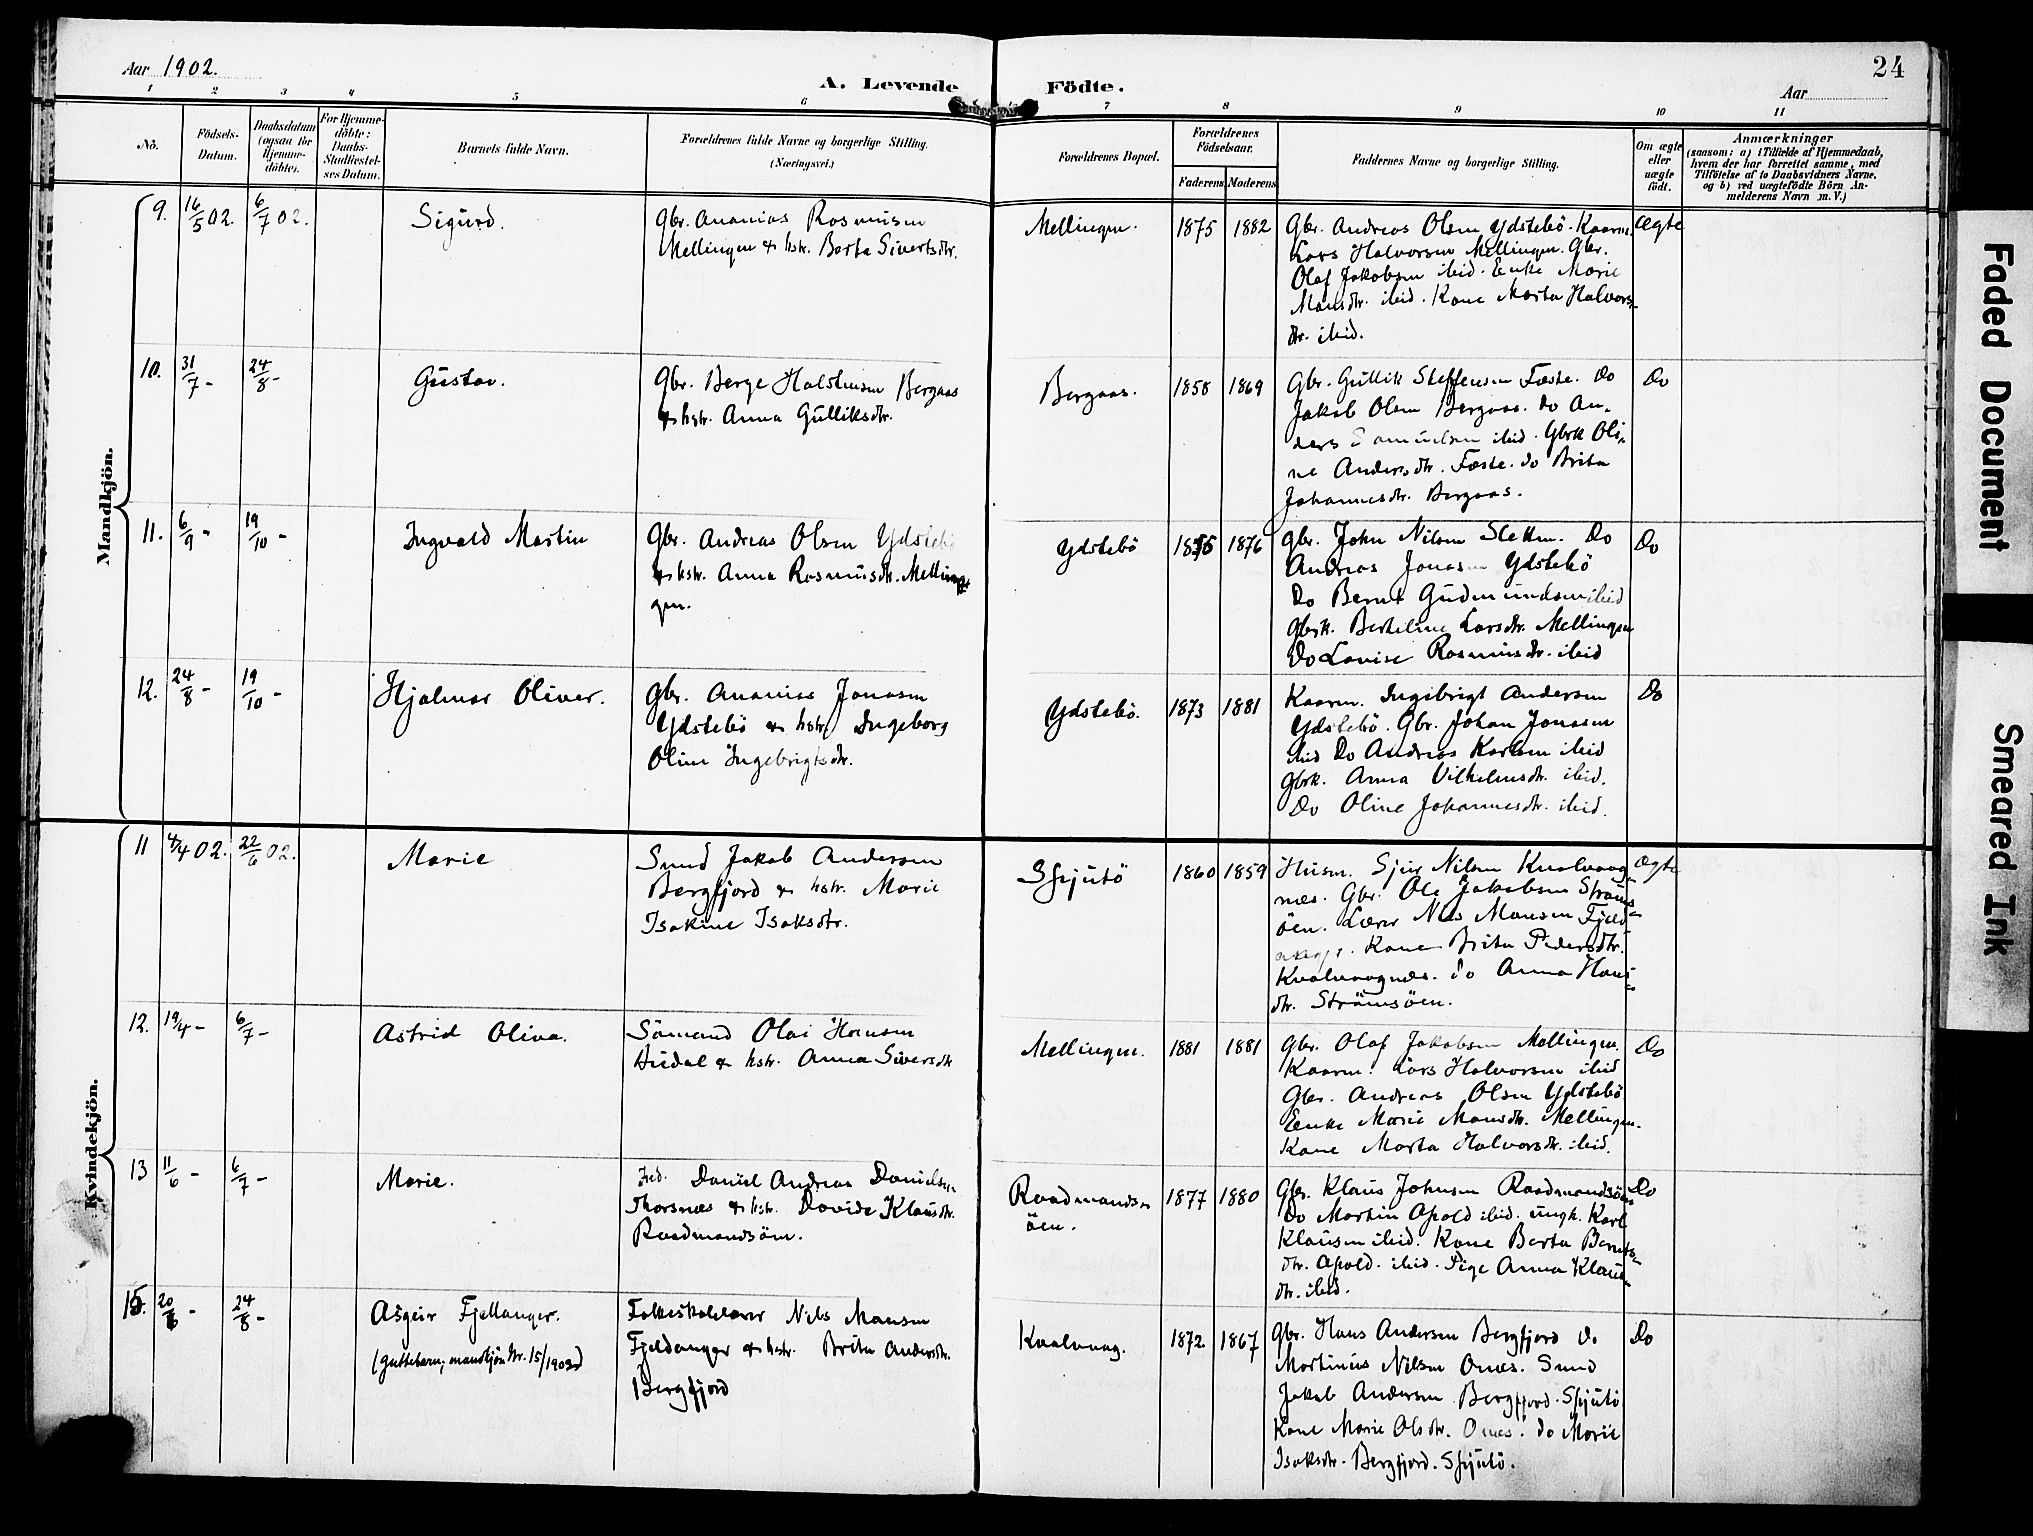 Aar 1902.
A. Levende Födte.
Aar
24
1 2 3 4 5 6 7 8 9 10 11
No.
Födsels-
Datum.
Daabsdatum
(ogsaa for
Hjemme-
döbte).
For Hjemme-
döbte:
Daabs-
Stadfæstel-
ses Datum.
Barnets fulde Navn.
Forældrenes fulde Navne og borgerlige Stilling.
(Næringsvei.)
Forældrenes Bopæl.
Forældrenes
Födselsaar.
Faderens Moderens
Faddernes Navne og borgerlige Stilling.
Om ægte
eller
uægte
födt.
Anmærkninger
(saasom: a) i Tilfælde af Hjemmedaab,
hvem der har forrettet samme, med
Tilföielse af to Daabsvidners Navne,
og b) ved uægtefödte Börn An-
melderens Navn m. V.)
Mandkjön.
9. 16/5 02. 6/7 02. Sigurd.
Gbr. Ananias Rasmusen
Mellingen & hstr. Berta Sivertsdtr.
Mellingen. 1875 1882
Gbr. Andreas Olsen Ydstebö. Kaarm.
Lars Halvorsen Mellingen. Gbr.
Olaf Jakobsen ibid. Enke Marie
Mansdtr. ibid. Kone Marta Halvors-
dtr. ibid.
Ægte
10. 31/7 - 24/8 - Gustav.
Gbr. Berge Halstensen Bergaas
& hstr. Anna Gulliksdtr.
Bergaas. 1858 1869
Gbr. Gullik Steffensen Fæste. Do
Jakob Olsen Bergaas. do An-
ders Samuelsen ibid. Gbrk Oli-
ne Andersdtr. Fæste. do Brita
Johannesdtr. Bergaas.
Do
11. 6/9 - 19/10 - Ingvald Martin
Gbr. Andreas Olsen Ydstebö
& hstr. Anna Rasmusdtr. Mellin-
gen.
Ydstebö 1876
Gbr. John Nilsen Sletten. Do
Andreas Jonasen Ydstebö
Do Bernt Gudmundsen ibid
Gbrk. Berteline Larsdtr. Mellingen
Do Lovise Rasmusdtr. ibid
Do
12. 24/8 - 19/10 - Hjalmar Oliver.
Gbr. Ananias Jonasen
Ydstebö & hstr Ingeborg
Oline Ingebrigtsdtr.
Ydstebö. 1873 1881
Kaarm. Ingebrigt Andersen
Ydstebö. Gbr. Johan Jonasen
ibid Do Andreas Karlsen ibid
Gbrk. Anna Vilhelmsdtr. ibid.
Do Oline Johannesdtr. ibid.
Do
Kvindekjön.
11 4/4 02. 22/6 02. Marie
Smed Jakob Andersen
Bergfjord & hstr. Marie
Isakine Isaksdtr.
Spjutö 1860 1859
Husm. Sjur Nilsen Kvalvaag-
næs. Gbr. Ole Jakobsen Ströms-
öen. Lærer Nils Monsen Fjeld-
anger. Kone Brita Pedersdtr.
Kvalvaagnæs. do Anna Hans-
dtr. Strömsöen.
Ægte
12. 19/4 - 6/7 - Astrid Oliva.
Sömand Olai Hansen
Hudal & hstr. Anna Siversdtr
Mellingen. 1881 1881
Gbr. Olaf Jakobsen Mellingen.
Kaarm. Lars Halvorsen ibid
Gbr. Andreas Olsen Ydstebö
Enke Marie Mansdtr. Mellingen.
Kone Marta Halvorsdtr. ibid.
Do
13 11/6 - 6/7 - Marie.
Ind. Daniel Andreas Danielsen
Thorsnæs & hstr. Davida Klausdtr.
Raadmandsöen.
Raadmands-
öen. 1877 1880
Gbr. Klaus Johnsen Raadmandsöen
Do Martin Apold ibid. Ungk. Karl
Klausen ibid. Kone Berta Bernts-
dtr. Apold. ibid. Pige Anna Klaus-
dtr. ibid.
Do
15. 20/6 - 24/8 - Asgeir Fjellanger.
(guttebarn; mandkjön Nr. 15/1902)
Folkeskolelærer Nils Monsen
Fjeldanger & hstr. Brita Andersdtr.
Bergfjord
Kvalvaag. 1872 1867
Gbr. Hans Andersen Bergfjord do
Martinius Nilsen Onæs. Smed
Jakob Andersen Bergfjord. Spjutö
Kone Marie Olsdtr. Onæs. do Marie
Isaksdtr. Bergfjord. Spjutö.
Do
Faded Document
Smeared Ink